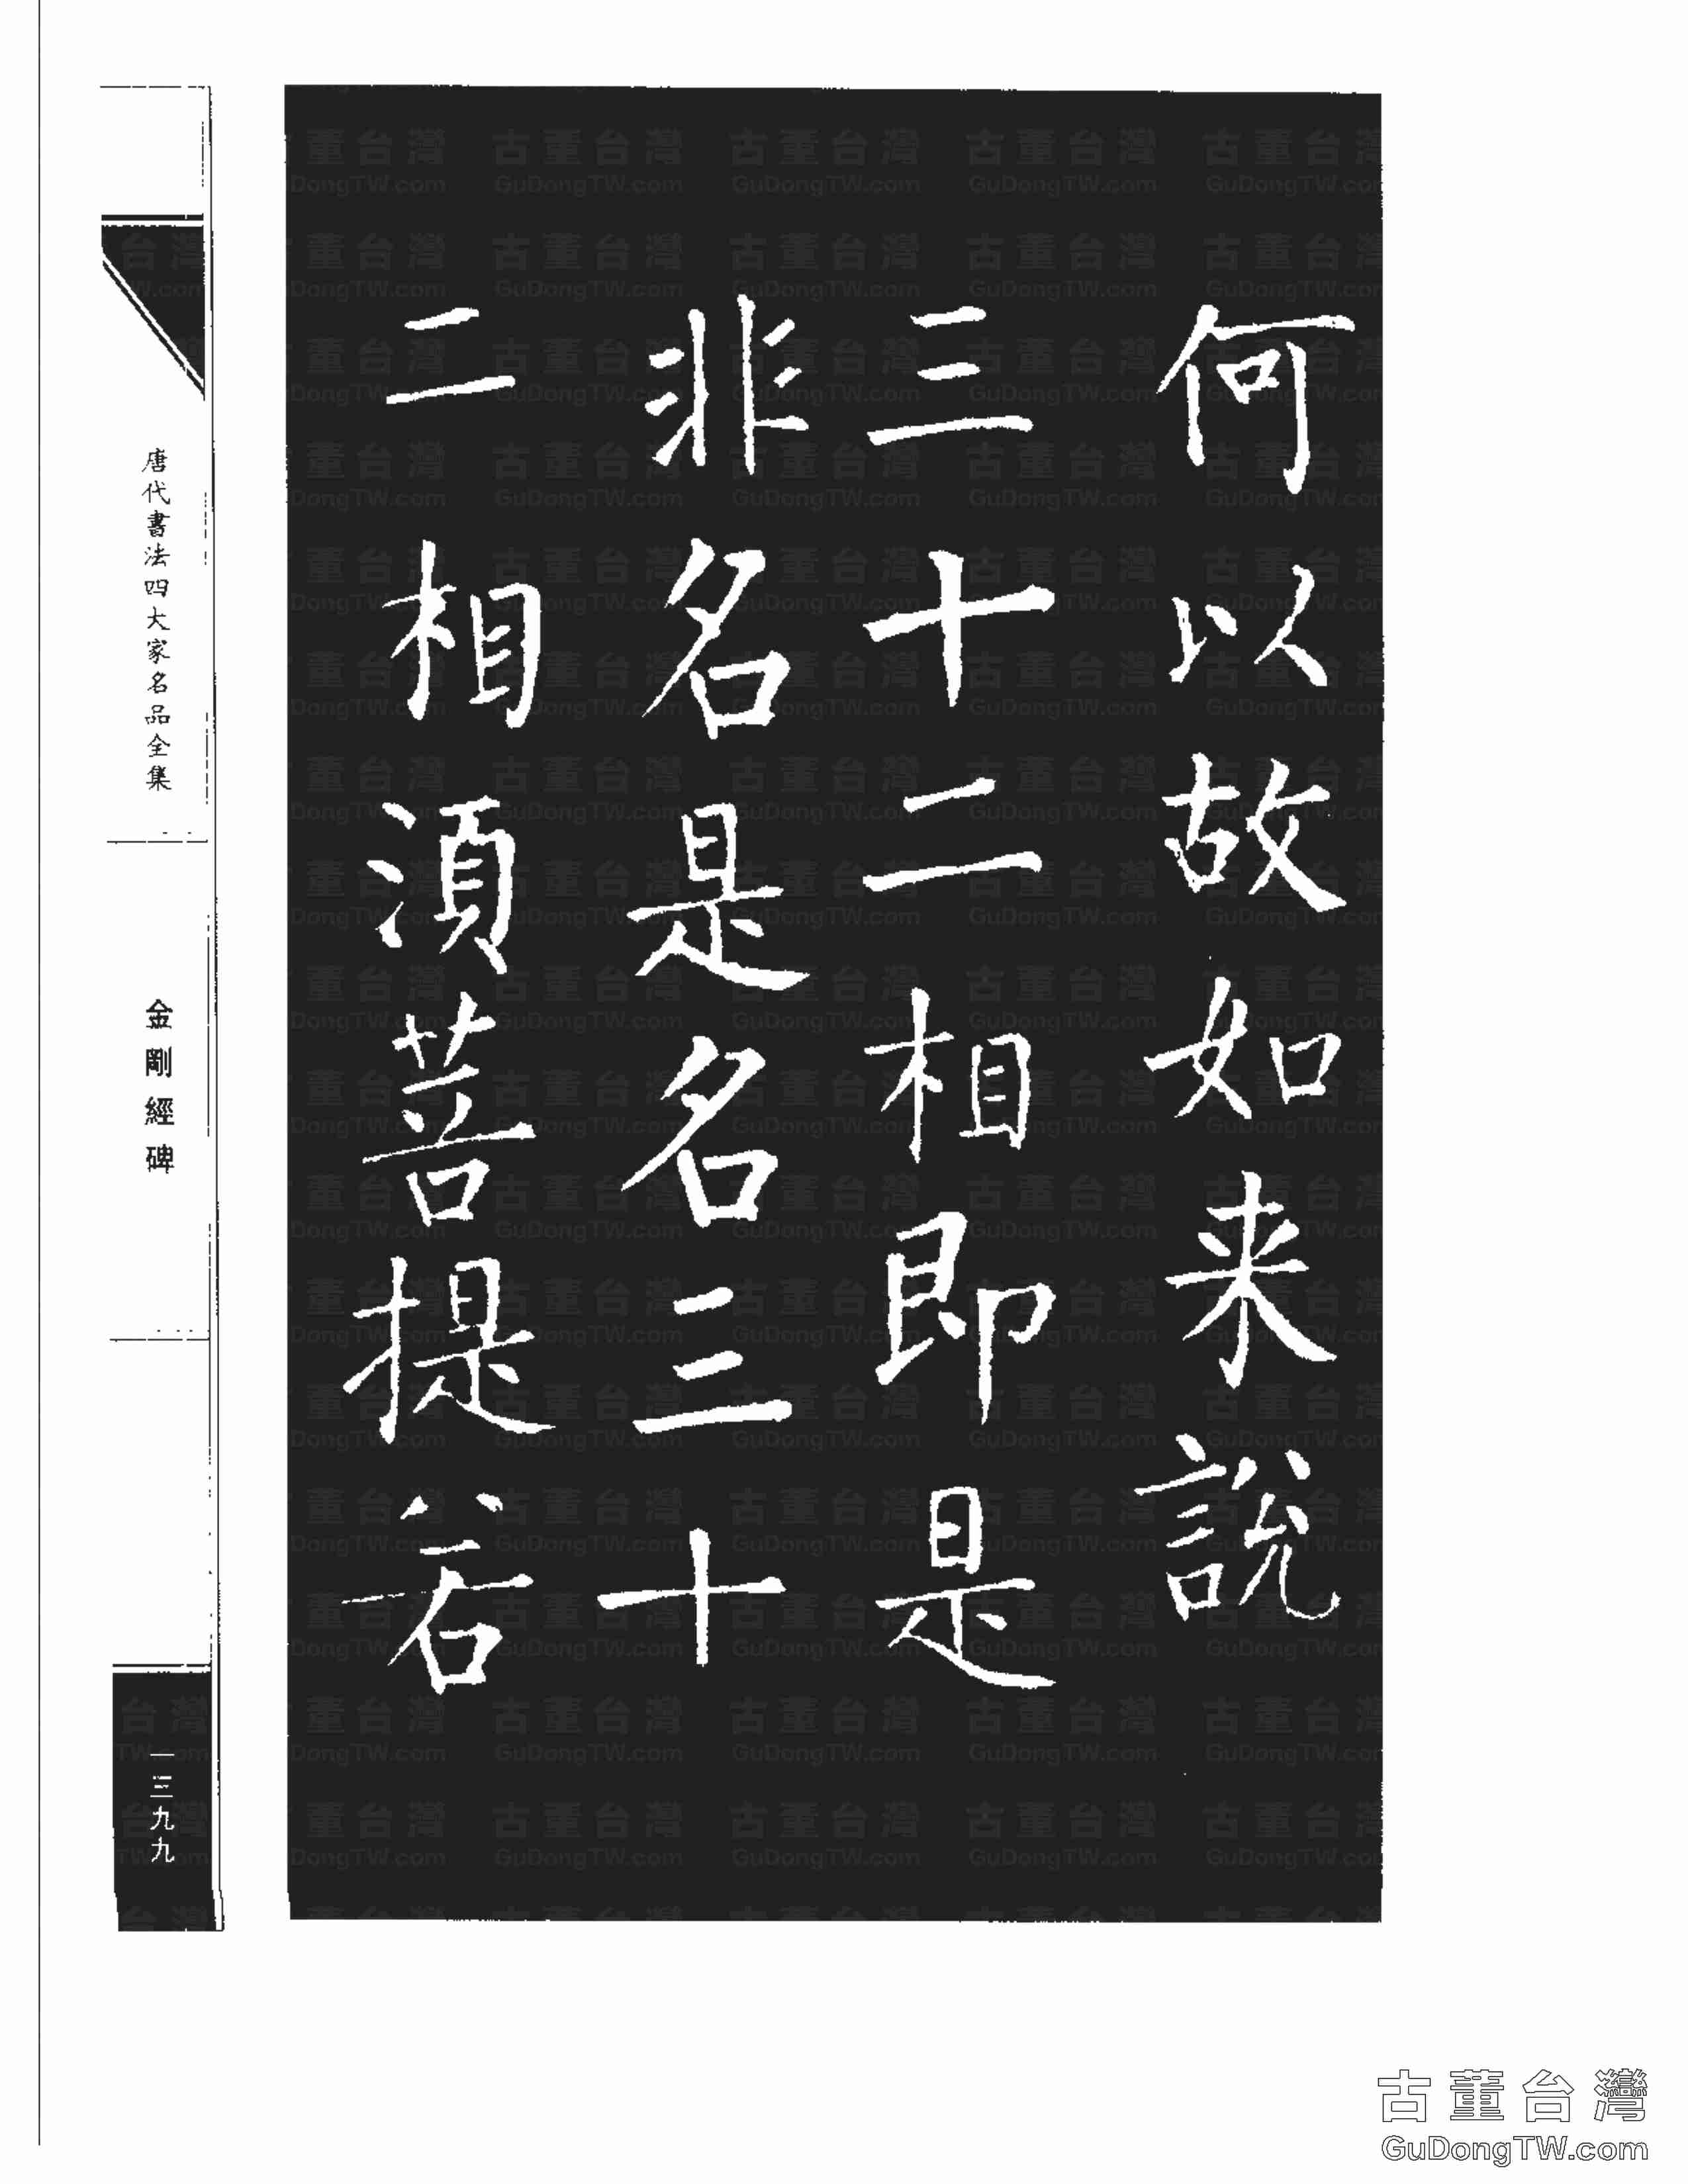 何以故如来說
三十二相即是
非名是名三十
二相湏菩提若
唐代書法四大家名品全集
金剛經碑
一三九九
古董台灣
GuDongTW.com